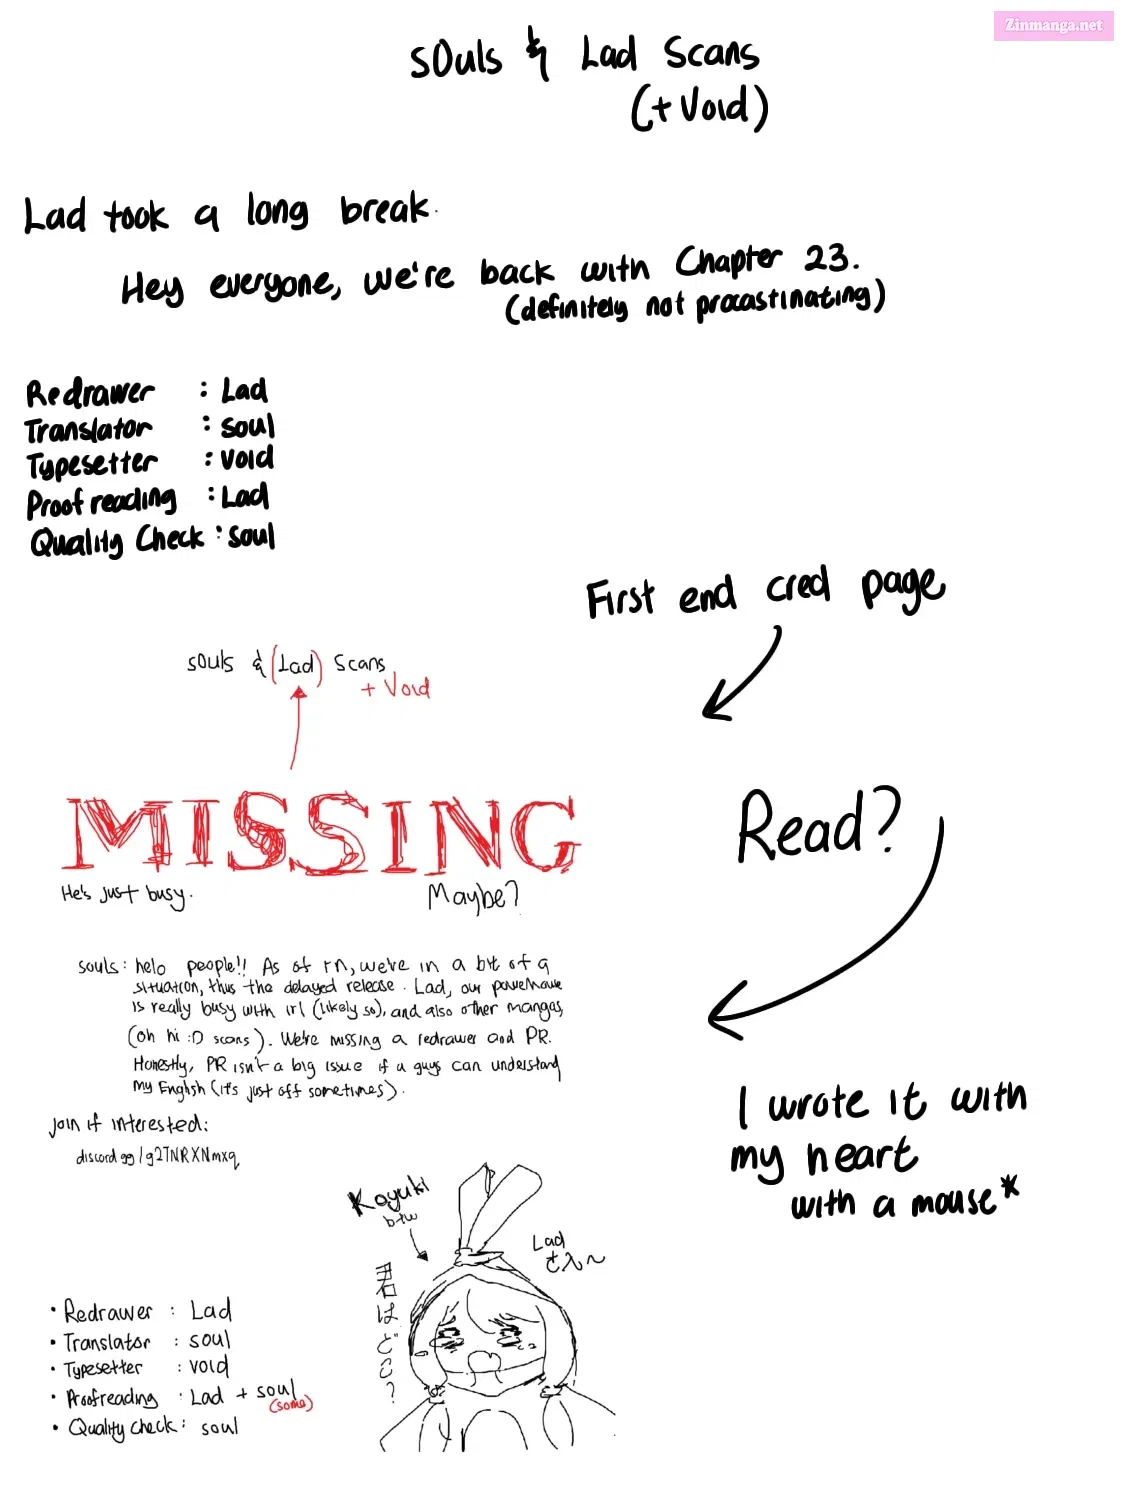 Zinmanga.net
sOuls & Lad Scans
(+Void)
Lad took a long break.
Hey everyone, we're back with Chapter 23.
(definitely not procastinating)
Redrawer : Lad
Translator : soul
Typesetter : void
Proof reading : Lad
Quality Check : soul
First end cred page
sOuls & (Lad) Scans
+ Void
MISSING
He's just busy.
Maybe?
Read?
souls: helo people!! As of rn, we're in a bit of a
situation, thus the delayed release. Lad, our powerhouse
is really busy with irl (likely so), and also other mangas,
(oh hi :D scans). We're missing a redrawer and PR.
Honestly, PR isn't a big issue if a guys can understand
my English (it's just off sometimes).
Join if interested:
discord gg/g2TNRXNmxq
I wrote it with
my heart
with a mouse*
Koyuki
btw
Lad
さん~
はどこ?
• Redrawer : Lad
• Translator : soul
• Typesetter : void
• Proofreading : Lad + soul
(some)
• Quality check : soul